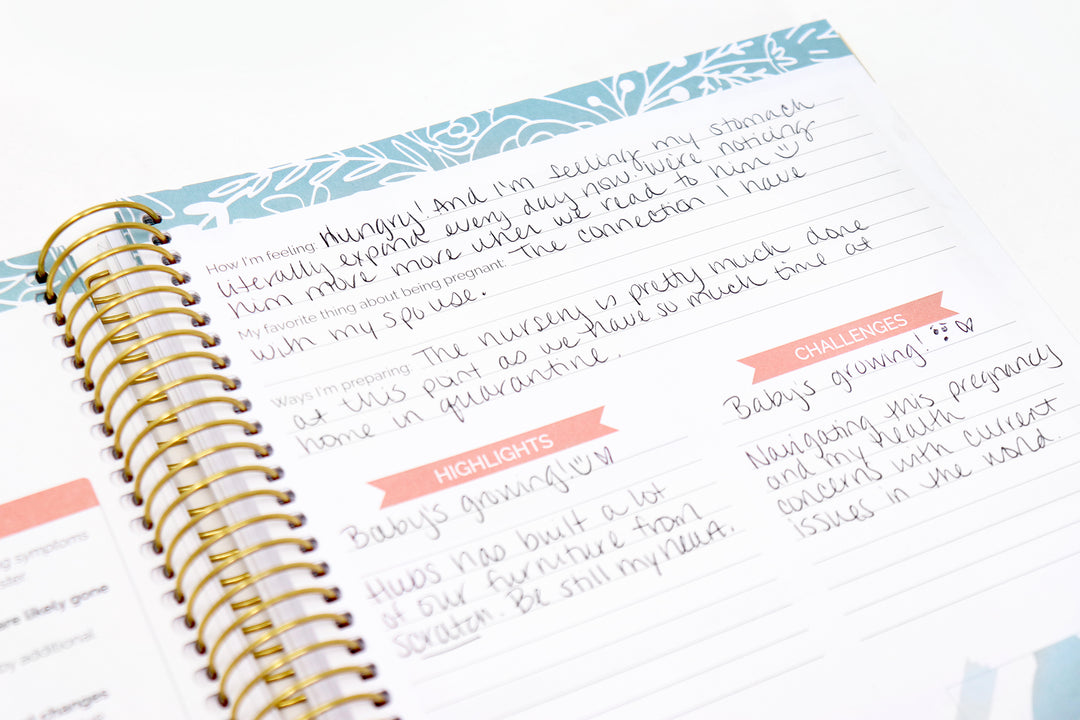 How I'm feeling: Hungry! And I'm feeling my stomach
literally expand every day now. We're noticing
him move more when we read to him
My favorite thing about being pregnant: The connection I have
with my spouse.
Ways I'm preparing: The nursery is pretty much done
at this point as we have so much time at
home in quarantine.
HIGHLIGHTS
Baby's growing!
Hubs has built a lot
of our furniture from
scratch. Be still my heart.
CHALLENGES
Baby's growing!
Navigating this pregnancy
and my health
concerns with current
issues in the world.
ng symptoms
are likely gone
by additional
changes